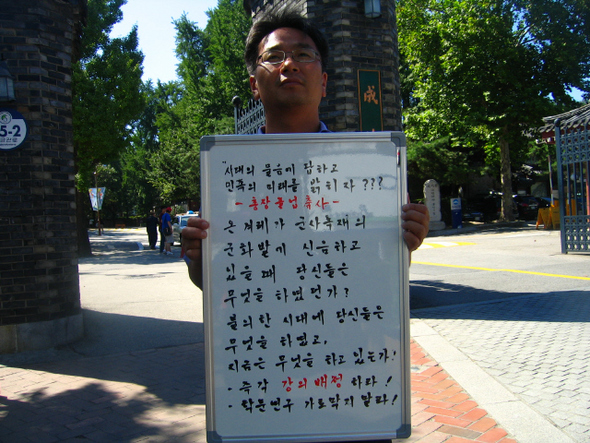 成
5-2
"시대의 물음에 답하고
민족의 미래를 밝히자???
- 총장 졸업 축사 -
온 겨레가 군사독재의
군화발에 신음하고
있을 때 당신들은
무엇을 하였던가?
불의한 시대에 당신들은
무엇을 하였고,
지금은 무엇을 하고 있는가!
- 즉각 강의 배정 하라!
- 학문연구 가로막지 말라!